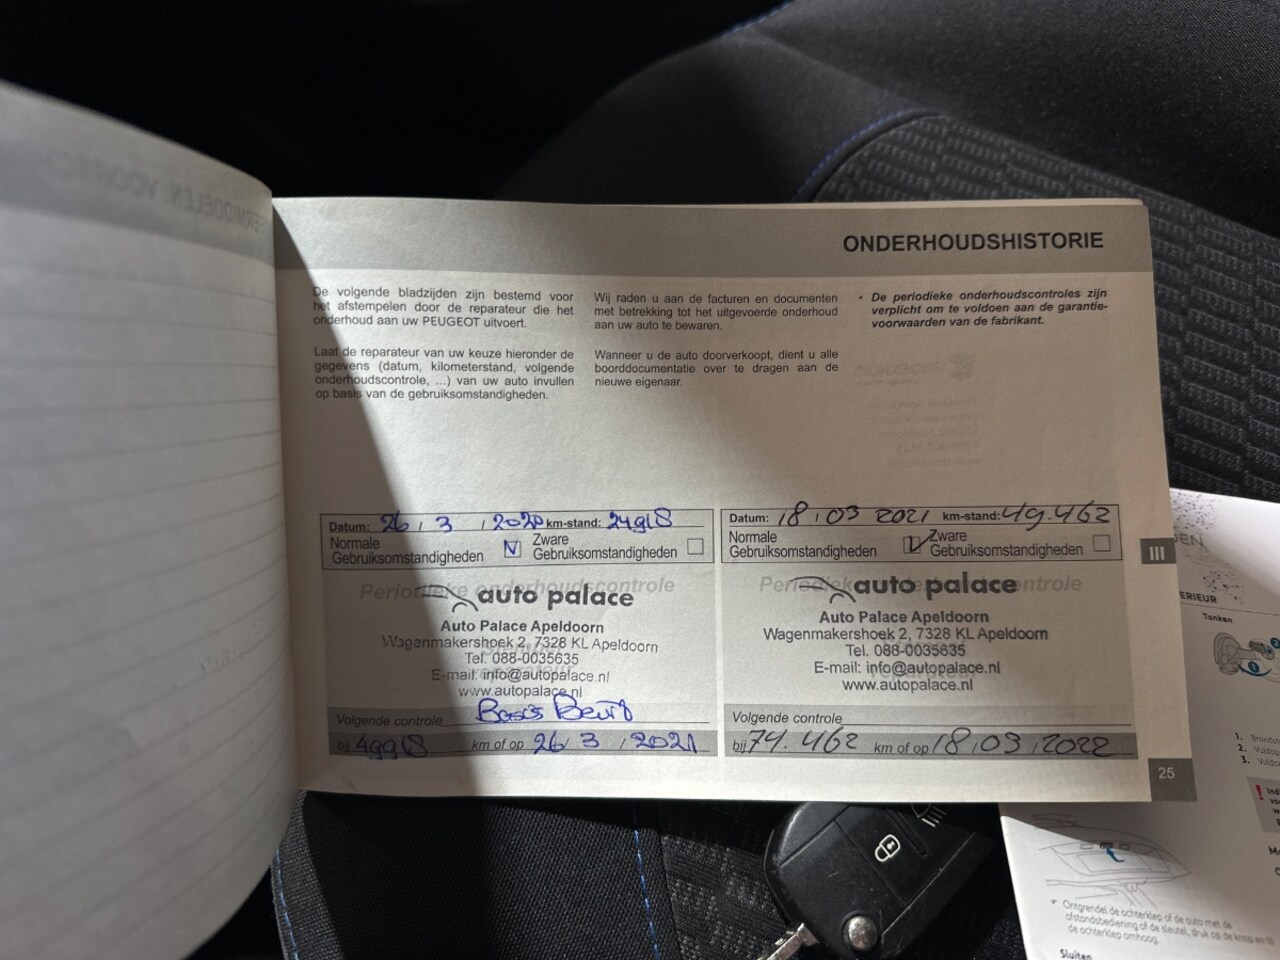 ONDERHOUDSHISTORIE
De volgende bladzijden zijn bestemd voor
het afstempelen door de reparateur die het
onderhoud aan uw PEUGEOT uitvoert.
Laat de reparateur van uw keuze hieronder de
gegevens (datum, kilometerstand, volgende
onderhoudscontrole, ...) van uw auto invullen
op basis van de gebruiksomstandigheden.
Wij raden u aan de facturen en documenten
met betrekking tot het uitgevoerde onderhoud
aan uw auto te bewaren.
Wanneer u de auto doorverkoopt, dient u alle
boorddocumentatie over te dragen aan de
nieuwe eigenaar.
• De periodieke onderhoudscontroles zijn
verplicht om te voldoen aan de garantie-
voorwaarden van de fabrikant.
Datum: 26 / 3 / 2020 km-stand: 24918
Normale Zware
Gebruiksomstandigheden Gebruiksomstandigheden
Periodieke onderhoudscontrole
auto palace
Auto Palace Apeldoorn
Wagenmakershoek 2, 7328 KL Apeldoorn
Tel. 088-0035635
E-mail: info@autopalace.nl
www.autopalace.nl
Volgende controle Basis Beurt
bij 49918 km of op 26 / 3 / 2021
Datum: 18 / 03 2021 km-stand: 49.462
Normale Zware
Gebruiksomstandigheden Gebruiksomstandigheden
auto palace
Auto Palace Apeldoorn
Wagenmakershoek 2, 7328 KL Apeldoorn
Tel. 088-0035635
E-mail: info@autopalace.nl
www.autopalace.nl
Volgende controle
bij 74.462 km of op 18 / 03 / 2022
III
25
Tanken
1.
2.
3.
Ontgrendel de achterklep of de auto met de
afstandsbediening of de sleutel, druk op de knop en til
de achterklep omhoog.
Sluiten